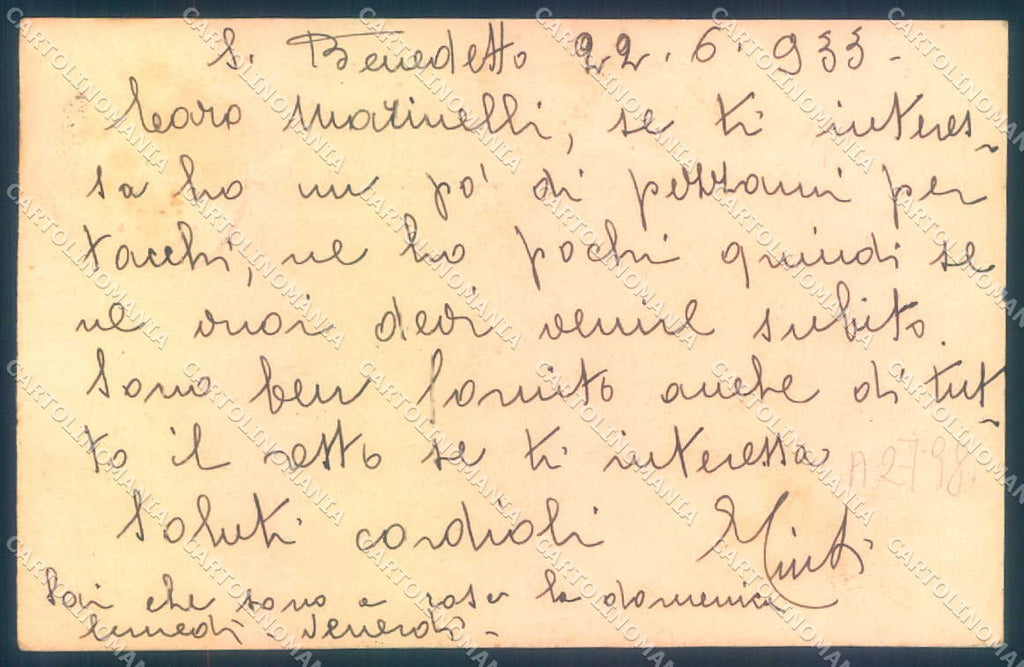 S. Benedetto 22.6.933-
Caro Martinelli, se ti interes-
sa ho un pò di pezzami per
tacchi, ne ho pochi quindi se
ne vuoi devi venire subito.
Sono ben fornito anche di tut-
to il resto se ti interessa
A2798.
Saluti cordiali
Sai che sono a casa la domenica
lunedì - Venerdì -
CARTOLINOMANIA